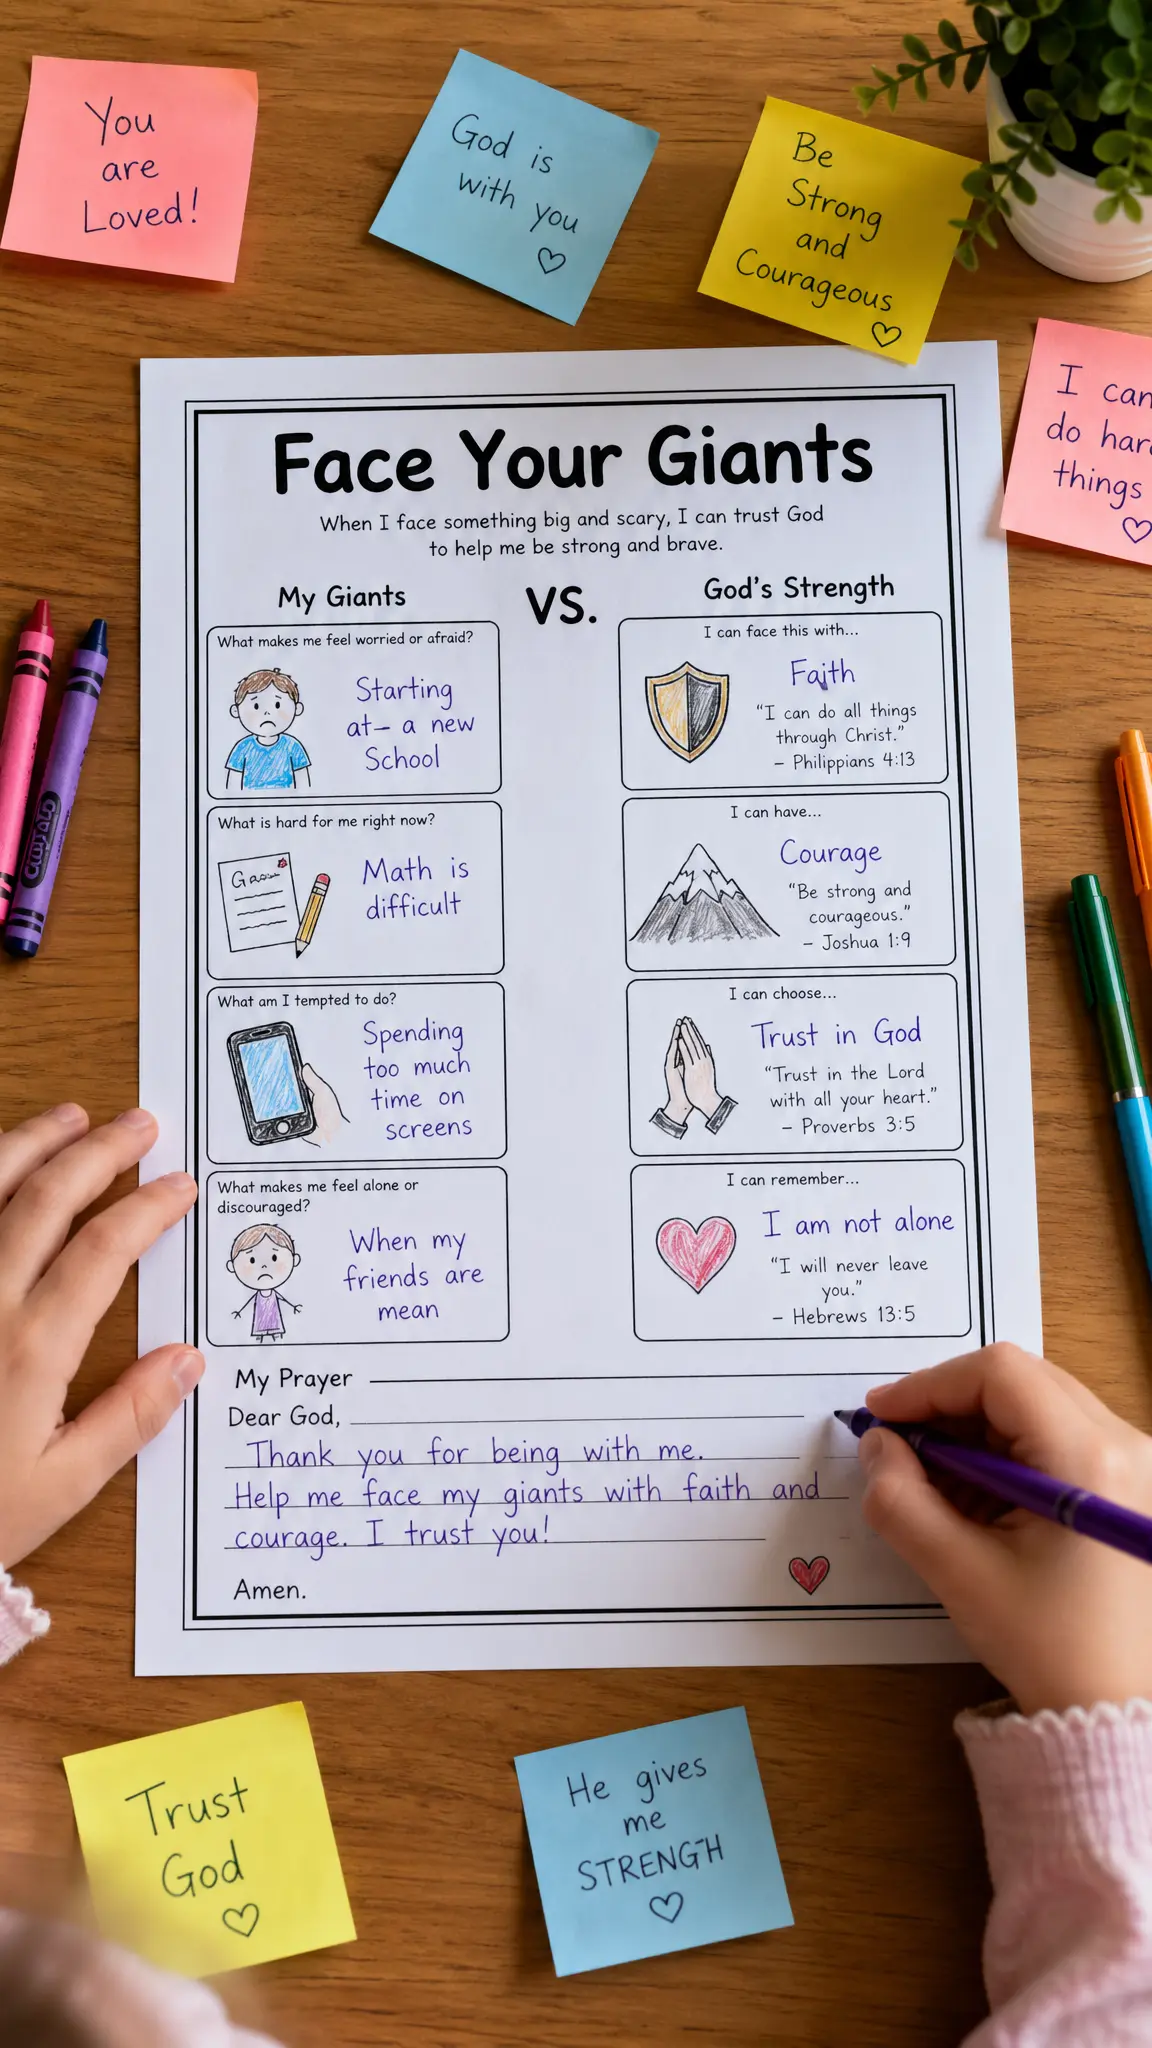 You
are
Loved!
God is
with you
Be
Strong
and
Courageous
I can
do har
things
Face Your Giants
When I face something big and scary, I can trust God
to help me be strong and brave.
My Giants
VS.
God's Strength
What makes me feel worried or afraid?
Starting
at— a new
School
I can face this with...
Faith
"I can do all things
through Christ."
– Philippians 4:13
What is hard for me right now?
Math is
difficult
I can have...
Courage
"Be strong and
courageous."
– Joshua 1:9
What am I tempted to do?
Spending
too much
time on
screens
I can choose...
Trust in God
"Trust in the Lord
with all your heart."
– Proverbs 3:5
What makes me feel alone or
discouraged?
When my
friends are
mean
I can remember...
I am not alone
"I will never leave
you."
– Hebrews 13:5
My Prayer
Dear God,
Thank you for being with me.
Help me face my giants with faith and
courage. I trust you!
Amen.
Trust
God
He gives
me
STRENGTH